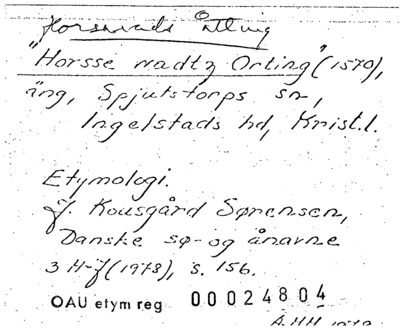 Horsevads Ørting
"Horsse wadtz Orting" (1570),
äng, Spjutstorps sn,
Ingelstads hd, Krist.l.
Etymologi.
J. Kousgård Sørensen,
Danske sø- og ånavne
3 H-J (1978), s. 156.
OAU etym reg 00024804